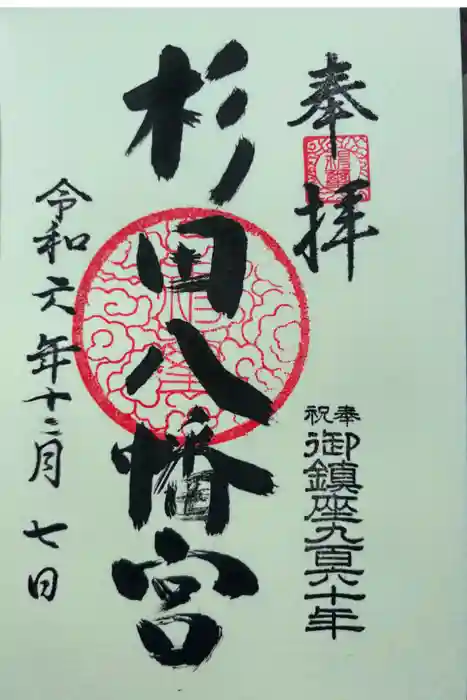 奉拝
奉祝
御鎮座九百六十年
杉田八幡宮
令和六年十二月七日